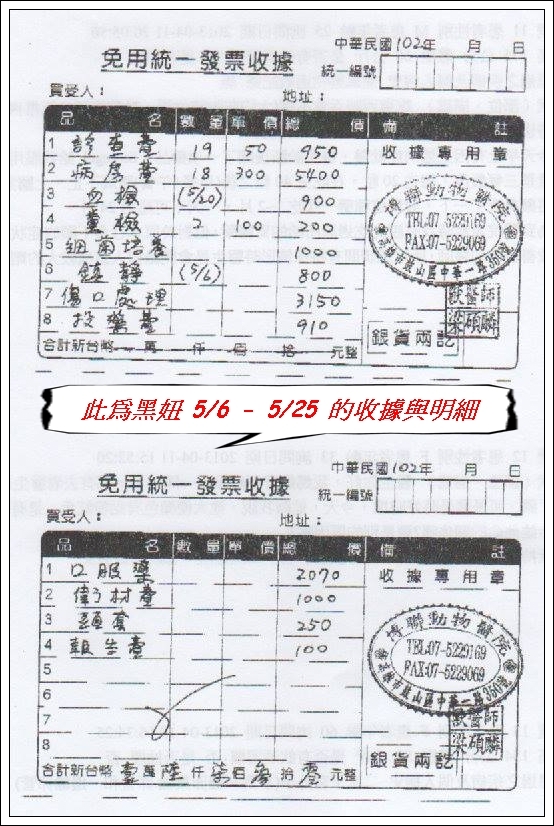 中華民國102年 月 日
免用統一發票收據
統一編號
買受人： 地址：
品名 數量 單價 總價 備註
1 診查費 19 50 950 收據專用章
2 病房費 18 300 5400
3 血檢 (5/20) 900
4 糞檢 2 100 200
5 細菌培養 1000
6 鎮靜 (5/6) 800
7 傷口處理 3150
8 投藥費 910
博聯動物醫院
TEL:07-5229169
FAX:07-5229069
獸醫師
梁碩麟
銀貨兩訖
合計新台幣 萬 仟 佰 拾 元整
此為黑妞 5/6 - 5/25 的收據與明細
中華民國102年 月 日
免用統一發票收據
統一編號
買受人： 地址：
品名 數量 單價 總價 備註
1 口服藥 2070 收據專用章
2 衛材費 1000
3 250
4 100
5
6
7
8
博聯動物醫院
TEL:07-5229169
FAX:07-5229069
獸醫師
梁碩麟
銀貨兩訖
合計新台幣 壹萬陸仟柒佰參拾零元整